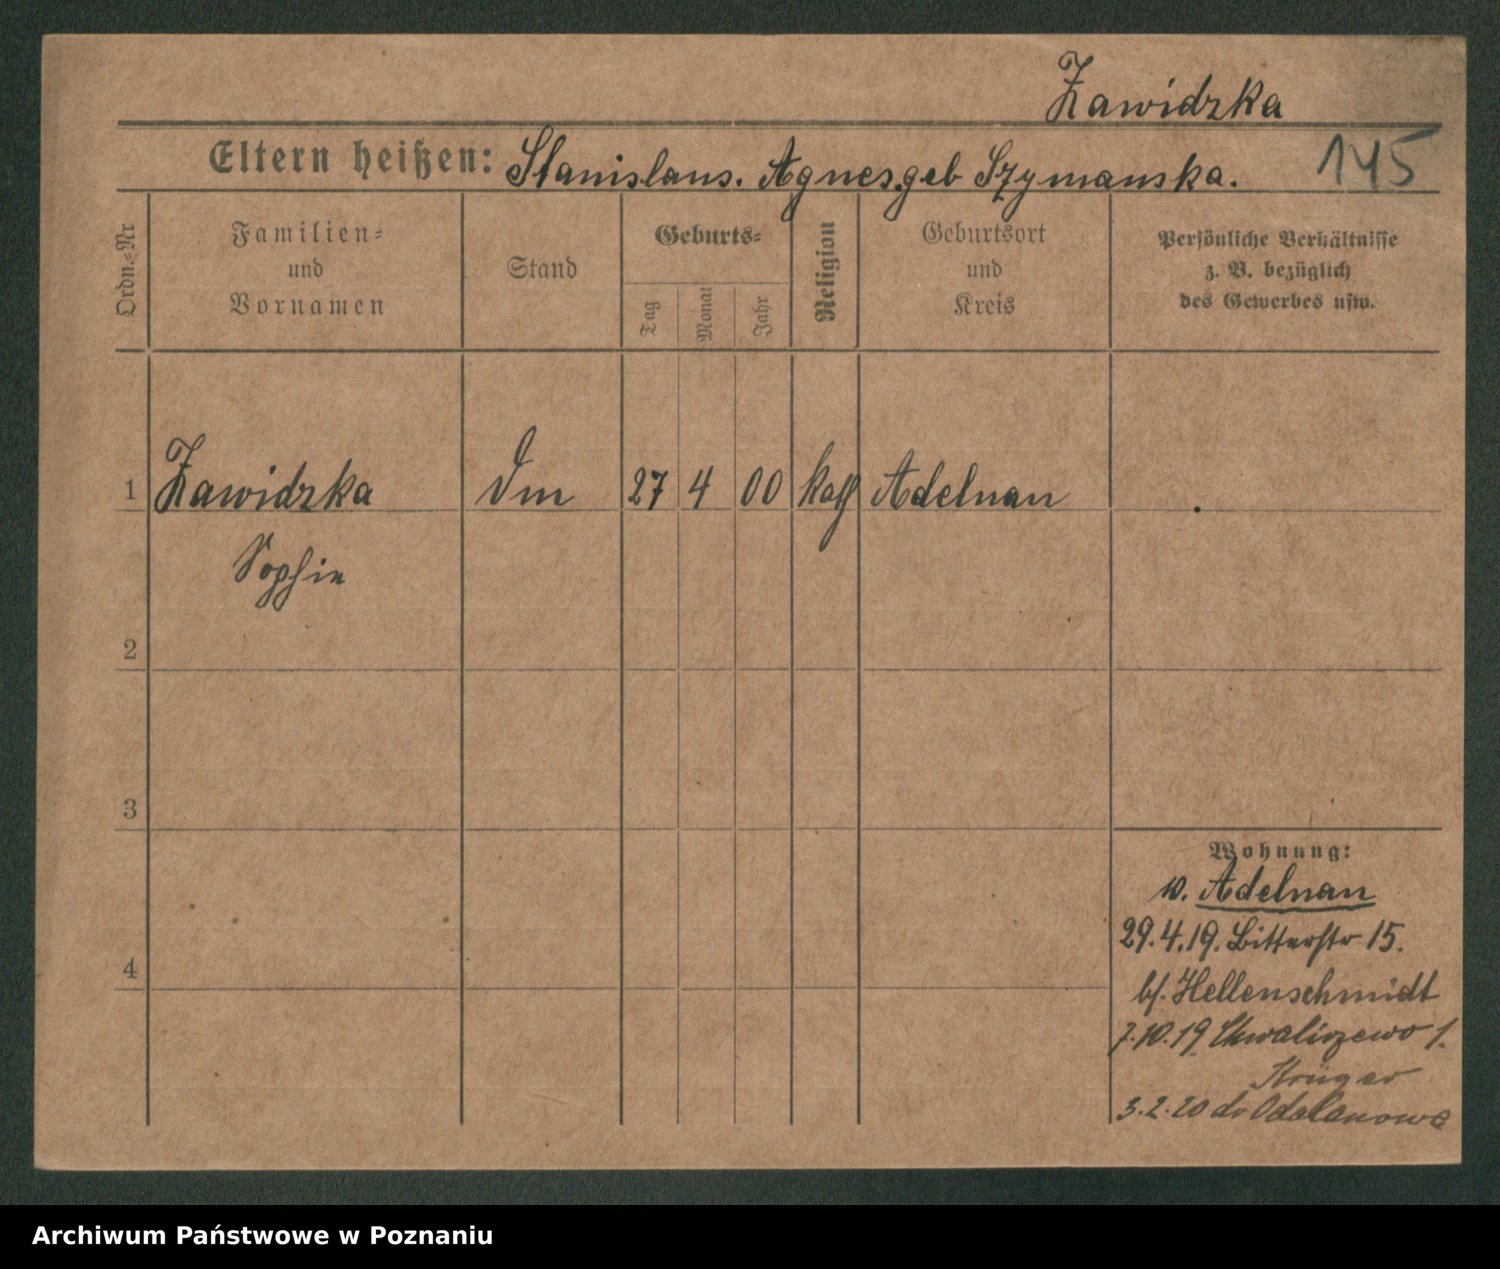 Zawidzka
Eltern heißen: Stanislaus. Agnes geb Szymanska.
145
Ordn.=Nr
Familien=
und
Vornamen
Stand
Geburts=
Tag
Monat
Jahr
Religion
Geburtsort
und
Kreis
Persönliche Verhältnisse
z. B. bezüglich
des Gewerbes usw.
1 Zawidzka 27 4 00 kath Adelnau
Sophie
2
3
4
Wohnung:
v. Adelnau
29.4.19. Bitterstr 15.
b/. Hellenschmidt
7.10.19 Chwaliszewo 1.
Krüger
3.2.20 do Odalanowa
Archiwum Państwowe w Poznaniu